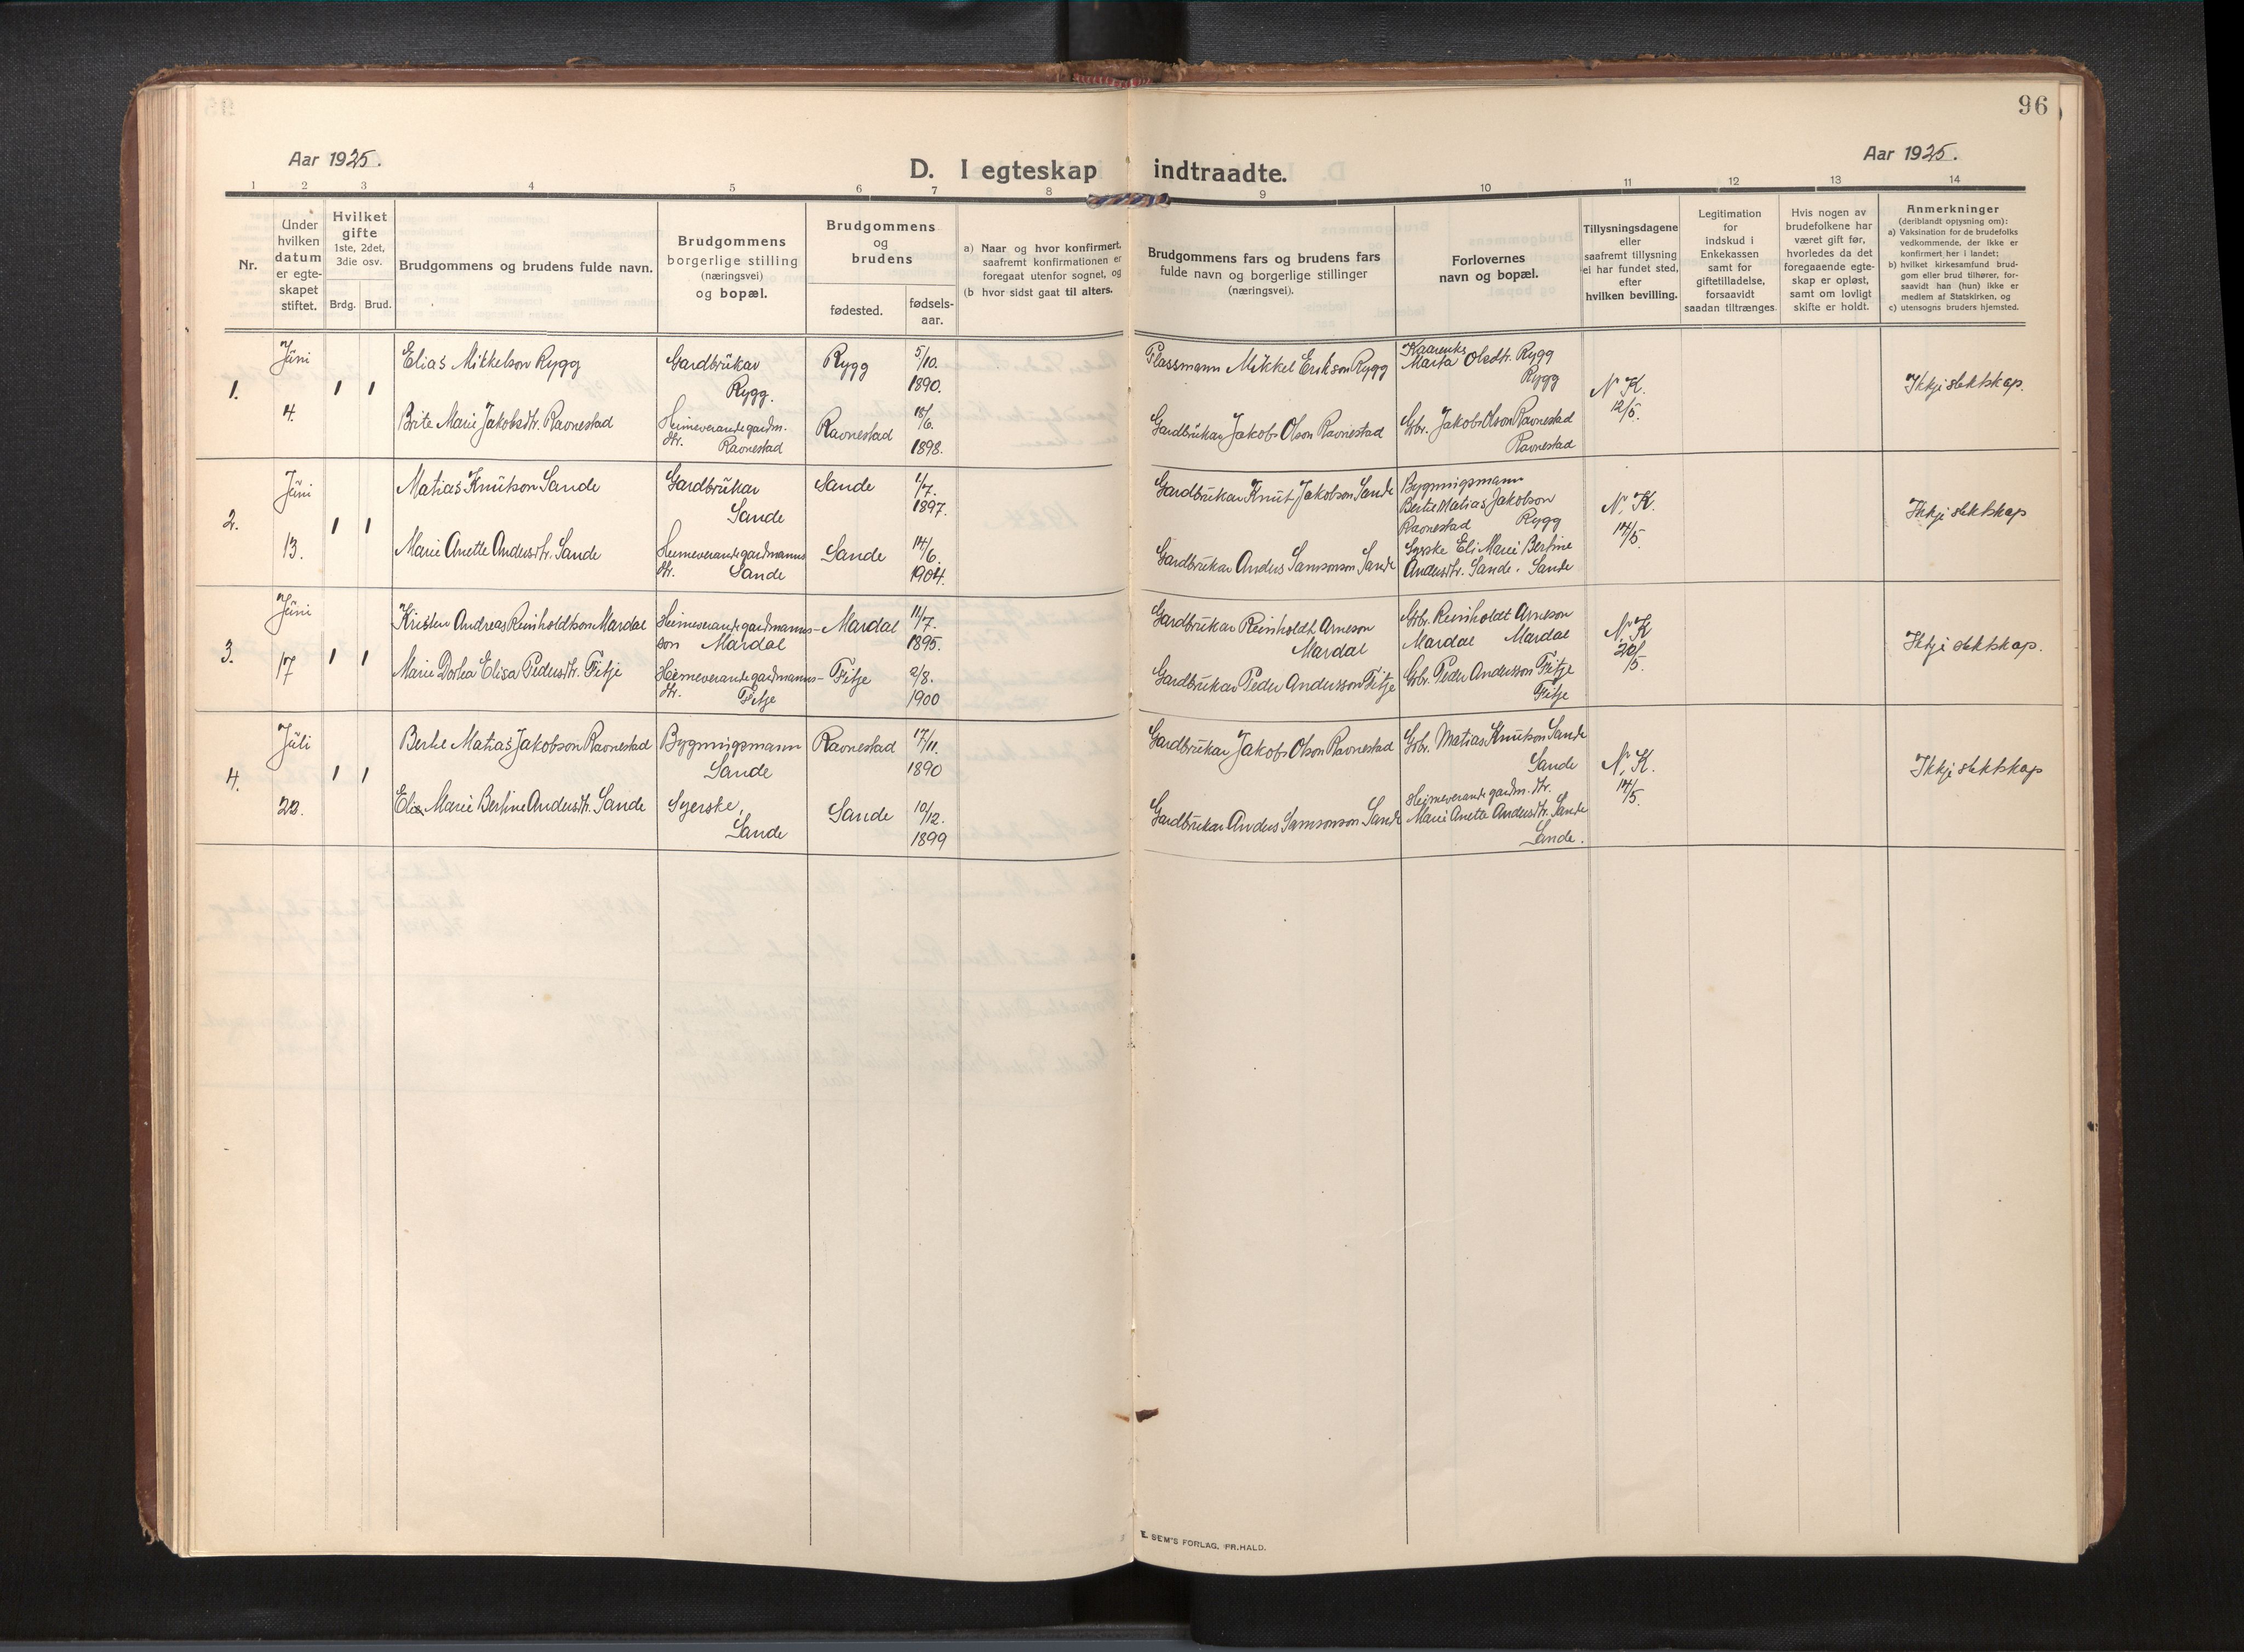 96
Aar 1925.
D. I egteskap indtraadte.
Aar 1925.
1 2 3 4 5 6 7 8 9 10 11 12 13 14
Nr.
Under
hvilken
datum
er egte-
skapet
stiftet.
Hvilket
gifte
1ste, 2det,
3die osv.
Brdg. Brud.
Brudgommens og brudens fulde navn.
Brudgommens
borgerlige stilling
(næringsvei)
og bopæl.
Brudgommens
og
brudens
fødested.
fødsels-
aar.
a) Naar og hvor konfirmert,
saafremt konfirmationen er
foregaat utenfor sognet, og
(b hvor sidst gaat til alters.
Brudgommens fars og brudens fars
fulde navn og borgerlige stillinger
(næringsvei).
Forlovernes
navn og bopæl.
Tillysningsdagene
eller
saafremt tillysning
ei har fundet sted,
efter
hvilken bevilling.
Legitimation
for
indskud i
Enkekassen
samt for
giftetilladelse,
forsaavidt
saadan tiltrænges.
Hvis nogen av
brudefolkene har
været gift før,
hvorledes da det
foregaaende egte-
skap er opløst,
samt om lovligt
skifte er holdt.
Anmerkninger
(deriblandt oplysning om):
a) Vaksination for de brudefolks
vedkommende, der ikke er
konfirmert her i landet;
b) hvilket kirkesamfund brud-
gom eller brud tilhører, for-
saavidt han (hun) ikke er
medlem af Statskirken, og
c) utensogns bruders hjemsted.
1.
Juni
4.
1 1
Elias Mikkelson Rygg
Brite Marie Jakobsdtr. Ravnestad
Gardbrukar
Rygg.
Heimeverande gardm.
dtr. Ravnestad
Rygg
Ravnestad
5/10.
1890.
18/6.
1898.
Plassmann Mikkel Erikson Rygg
Gardbrukar Jakob Olson Ravnestad
Marta Olsdtr. Rygg
Rygg
Gbr. Jakob Olson Ravnestad
Ravnestad
N. K.
12/5.
Ikkje slektskap.
2.
Juni
13.
1 1
Matias Knutson Sande
Marie Anette Andersdtr. Sande
Gardbrukar
Sande
Heimeverande gardmanns
dtr. Sande
Sande
Sande
1/7.
1897.
14/6.
1904.
Gardbrukar Knut Jakobson Sande
Gardbrukar Anders Samsonson Sande
Bygningsmann
Bertel Matias Jakobson
Ravnestad Rygg
Syerske Eli Marie Bertine
Andersdtr. Sande. Sande
N. K.
14/5.
Ikkje slektskap
3.
Juni
17
1 1
Kristen Andreas Reinholdtson Mardal
Marie Dorthea Elisa Pedersdtr. Fitje
Heimeverande gardmanns-
son Mardal
Heimeverande gardmanns-
dtr. Fitje
Mardal
Fitje
11/7.
1895.
2/8.
1900
Gardbrukar Reinholdt Arneson
Mardal
Gardbrukar Peder Andersson Fitje
Gbr. Reinholdt Arneson
Mardal Mardal
Gbr. Peder Andersson Fitje
Fitje
N. K.
20/5.
Ikkje slektskap.
4.
Juli
22.
1 1
Bertel Matias Jakobson Ravnestad
Eli Marie Bertine Andersdtr. Sande
Bygningsmann
Sande
Syerske,
Sande
Ravnestad
Sande
17/11.
1890
10/12.
1899
Gardbrukar Jakob Olson Ravnestad
Gardbrukar Anders Samsonson Sande
Gbr. Matias Knutson Sande
Sande
Heimeverande gardm. dtr.
Marie Anette Andersdtr. Sande
Sande.
N. K.
14/5.
Ikkje slektskap
E. SEM'S FORLAG, FR.HALD.